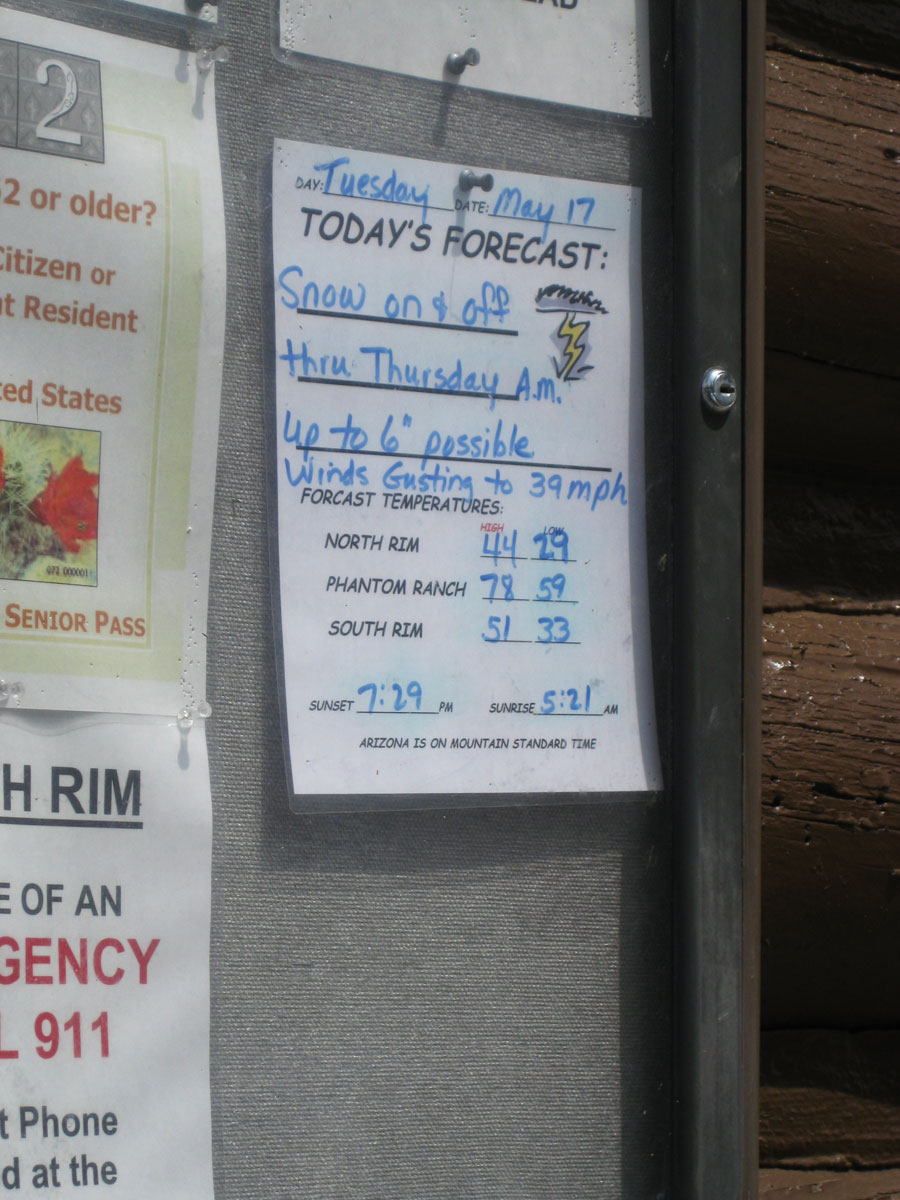 2
2 or older?
Citizen or
t Resident
ted States
073 000001
SENIOR PASS
H RIM
E OF AN
GENCY
L 911
t Phone
d at the
DAY: Tuesday DATE: May 17
TODAY'S FORECAST:
Snow on & off
thru Thursday A.M.
Up to 6" possible
Winds Gusting to 39 mph
FORCAST TEMPERATURES:
HIGH LOW
NORTH RIM 44 29
PHANTOM RANCH 78 59
SOUTH RIM 51 33
SUNSET 7:29 PM SUNRISE 5:21 AM
ARIZONA IS ON MOUNTAIN STANDARD TIME